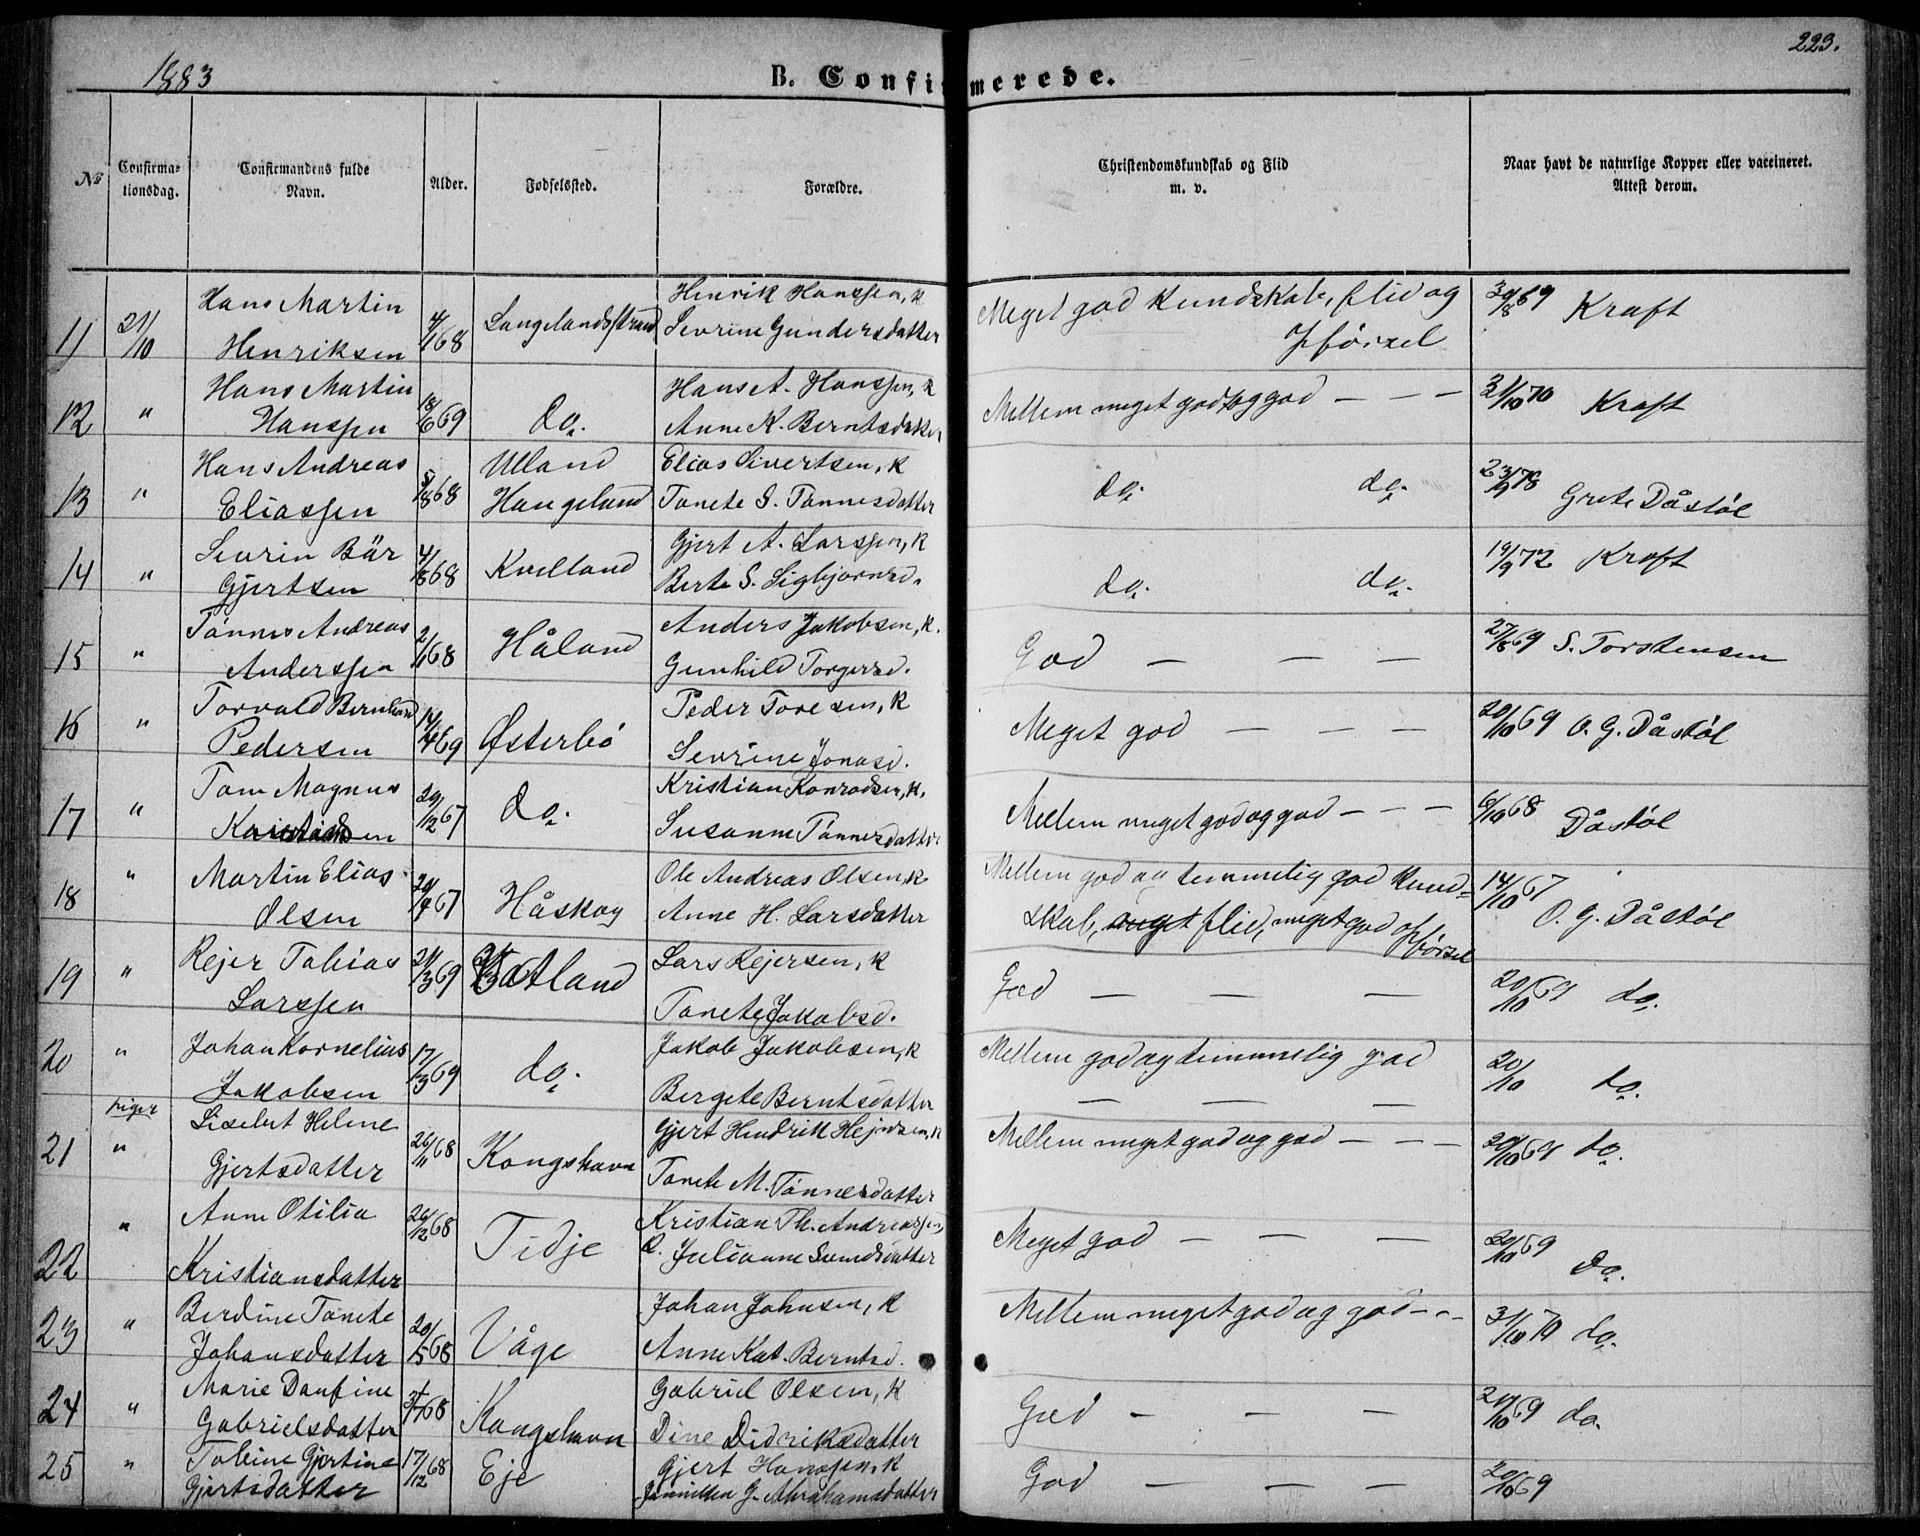 1883
B. Confirmerede.
223.
No
Confirma-
tionsdag.
Confirmandens fulde
Navn.
Alder.
Fødselssted.
Forældre.
Christendomskundskab og Flid
m. v.
Naar havt de naturlige Kopper eller vaccineret.
Attest derom.
11 21/10 Hans Martin
Henriksen 4/1 68 Langelandsstrand Henrik Hanssen, K
Sevrine Gundersdatter Meget god Kundskab, flid og
Opførsel 30/8 69 Kraft
12 " Hans Martin
Hanssen 18/6 69 do. Hans A. Hanssen, K
Anne K. Berntsdatter Mellem meget god og god — — — 31/10 70 Kraft
13 " Hans Andreas
Eliassen 5/8 68 Ulland
Haugeland Elias Sivertsen, K
Tonete S. Tønnesdatter do. do. 23/9 78 Grete Dåstøl
14 " Sevrin Bär
Gjertsen 4/8 68 Kvelland Gjert A. Larssen, K
Berte S. Sigbjørnsd. do. do. 19/9 72 Kraft
15 " Tønnes Andreas
Anderssen 2/1 68 Håland Anders Jakobsen, K.
Gunhild Torgersd. God — — — 27/8 69 S. Torstensen
16 " Torvald Bernhard
Pedersen 14/4 69 Østerbö Peder Toresen, K
Sevrine Jonasd. Meget god — — — 20/10 69 O. G. Dåstøl
17 " Tom Magnus
29/12 67 do. Kristian Konradsen, K.
Susanne Tønnesdatter Mellem meget god og god — — — 6/10 68 Dåstøl
18 " Martin Elias
Olsen 67 Håskog Ole Andreas Olsen, K
Anne H. Larsdatter Mellem god og temmelig god Kund-
skab, meget flid, meget god opførsel 14/10 67 O. G. Dåstøl
19 " Rejer Tobias
Larssen 21/3 69 Vatland Lars Rejersen, K
Tonete Jakobsd. God — — — 20/10 69 do.
20 " Johan Kornelius
Jakobsen 17/3 69 do. Jakob Jakobsen, K
Bergete Berntsdatter Mellem god og temmelig god
— — — 20/10 do.
Piger
21 " Liselbet Helene
Gjertsdatter 26/11 68 Kongshavn Gjert Hendrik Hejersen, K
Tonete M. Tønnesdatter Mellem meget god og god — — — 20/10 69 do.
22 " Anne Otilia
Kristiansdatter 26/12 68 Tidje Kristian Th. Andreassen,
K. Julianne Svendsdatter Meget god — — — 20/10 69 do.
23 " Berdine Tonete
Johansdatter 20/5 68 Våge Johan Johnsen, K
Anne Kat. Berntsd. Mellem meget god og god — — 31/10 70 do.
24 " Marie Daufine
Gabrielsdatter 68 Kongshavn Gabriel Olsen, K
Dine Didriksdatter God — — — 20/10 69 do.
25 " Tobine Gjertine
Gjertsdatter 17/12 68 Eje Gjert Hanssen, K
G. Abrahamsdatter God — — — 20/10 69